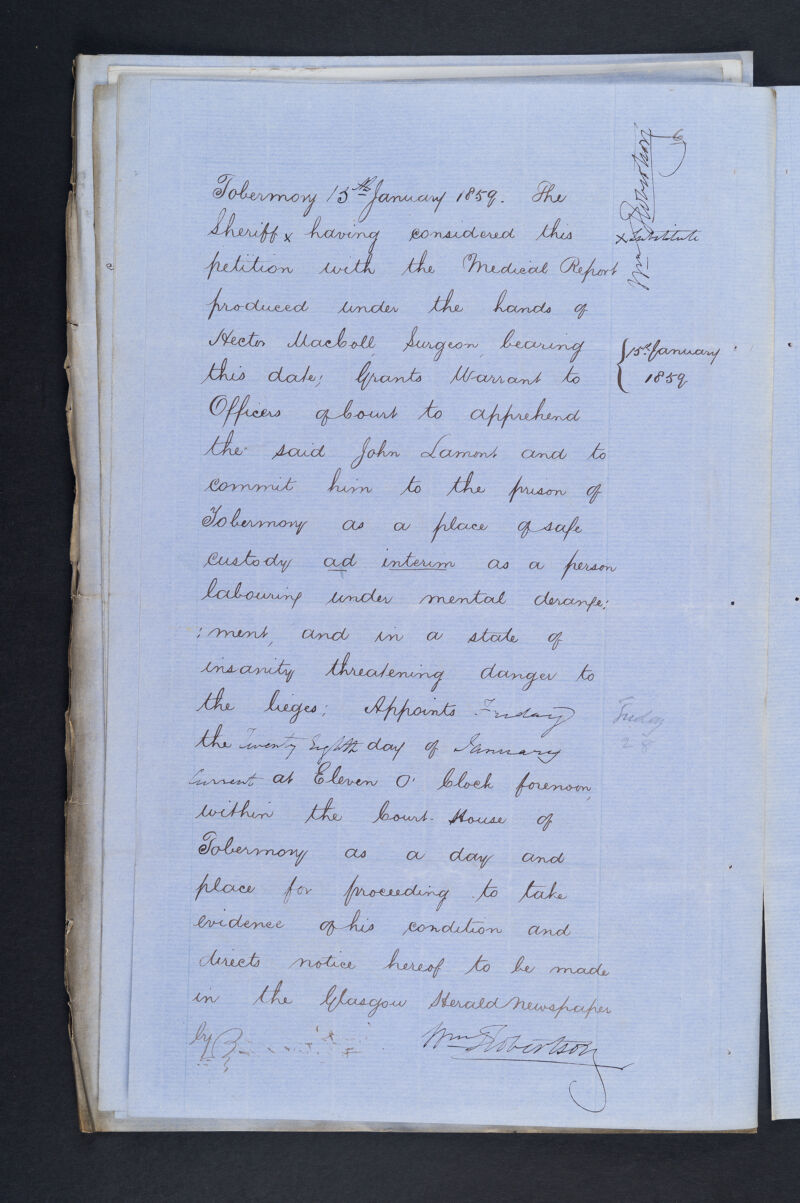 6
Tobermory 15th January 1859. The
Sheriff x having considered this
x Substitute
Wm Robertson
petition with the Medical Report
produced under the hands of
Hector MacColl Surgeon, bearing
{15th January
1859
this date; Grants Warrant to
Officers of Court to apprehend
the said John Lamont and to
commit him to the prison of
Tobermory as a place of safe
custody ad interim as a person
labouring under mental derange:
:ment, and in a state of
insanity threatening danger to
the lieges; Appoints Friday
Friday
28
the Twenty Eighth day of January
Current at Eleven O' Clock forenoon,
within the Court-House of
Tobermory as a day and
place for proceeding to take
evidence of his condition and
directs notice hereof to be made
in the Glasgow Herald Newspaper
by
Wm Robertson